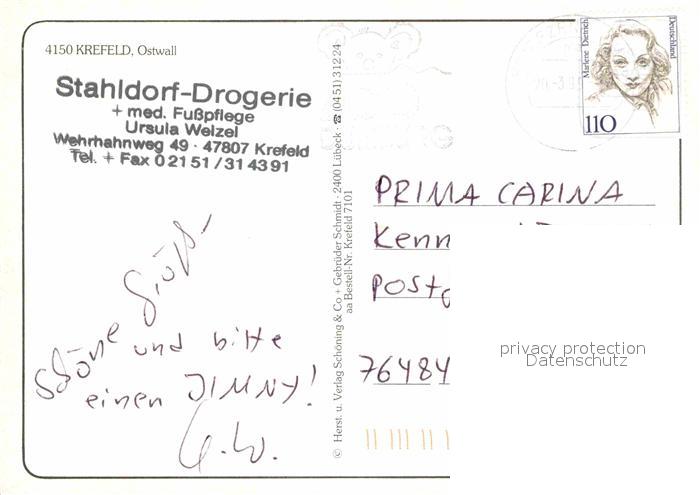 4150 KREFELD, Ostwall
Stahldorf-Drogerie
+ med. Fußpflege
Ursula Welzel
Wehrhahnweg 49 · 47807 Krefeld
Tel. + Fax 0 21 51 / 31 43 91
Schöne Grüße
und bitte
einen JIMNY!
U.W.
© Herst. u. Verlag Schöning & Co + Gebrüder Schmidt · 2400 Lübeck · ☎ (04 51) 3 12 24
aa Bestell-Nr. Krefeld 7101
Marlene Dietrich
Deutschland
110
PRIMA CARINA
Kenn
Post
76484
privacy protection
Datenschutz